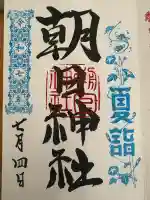 夏詣
朝日神社
令和七年
七月四日